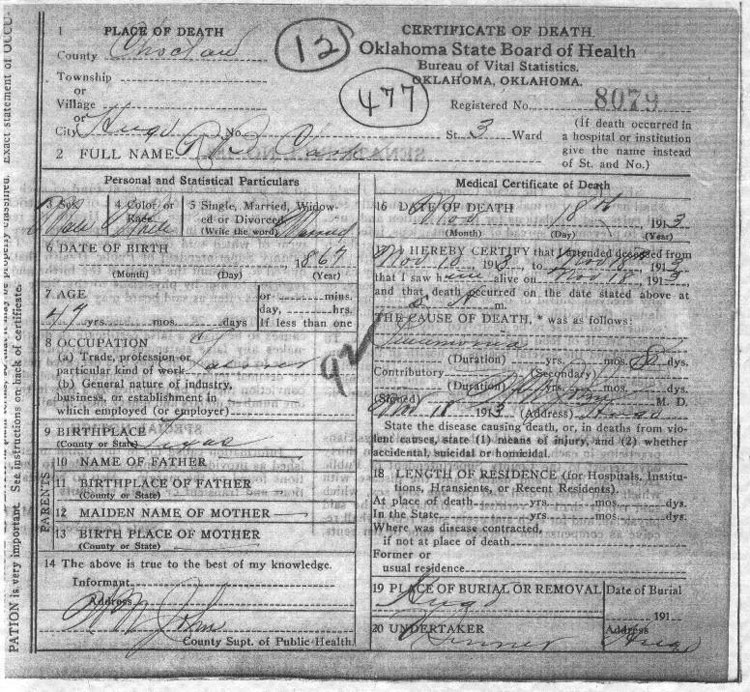 1 PLACE OF DEATH
County Choctaw
Township
or
Village
or
City Hugo No. St. 3 Ward
2 FULL NAME
12
477
CERTIFICATE OF DEATH.
Oklahoma State Board of Health
Bureau of Vital Statistics.
OKLAHOMA, OKLAHOMA.
Registered No. 8079
(If death occurred in
a hospital or institution
give the name instead
of St. and No.)
Personal and Statistical Particulars
3 Sex Male
4 Color or Race White
5 Single, Married, Widow-
ed or Divorced
(Write the word) Married
6 DATE OF BIRTH 1867
(Month) (Day) (Year)
7 AGE
yrs. mos. days
or mins.
day, hrs.
If less than one
8 OCCUPATION
(a) Trade, profession or
particular kind of work
(b) General nature of industry,
business, or establishment in
which employed (or employer)
92
9 BIRTHPLACE
(County or State) Texas
PARENTS
10 NAME OF FATHER
11 BIRTHPLACE OF FATHER
(County or State)
12 MAIDEN NAME OF MOTHER
13 BIRTH PLACE OF MOTHER
(County or State)
14 The above is true to the best of my knowledge.
Informant
Address
John
County Supt. of Public Health
Medical Certificate of Death
16 DATE OF DEATH
Nov 18th 1913
(Month) (Day) (Year)
17 I HEREBY CERTIFY that I attended deceased from
Nov 10 1913, to Nov 18 1913
that I saw him alive on Nov 18, 1913
and that death occurred on the date stated above at
m.
THE CAUSE OF DEATH, * was as follows:
Pneumonia
(Duration) yrs. mos. 8 dys.
Contributory (Secondary)
(Duration) yrs. mos. dys.
(Signed) M. D.
Nov 18 1913 (Address) Hugo
State the disease causing death, or, in deaths from vio-
lent causes, state (1) means of injury, and (2) whether
accidental, suicidal or homicidal.
18 LENGTH OF RESIDENCE (for Hospitals, Institu-
tions, Hransients, or Recent Residents).
At place of death yrs. mos. dys.
In the State yrs. mos. dys.
Where was disease contracted,
if not at place of death
Former or
usual residence
19 PLACE OF BURIAL OR REMOVAL
Hugo
Date of Burial
191
20 UNDERTAKER
Address
Hugo
PATION is very important. See instructions on back of certificate.
be properly classified. Exact statement of OCCU-